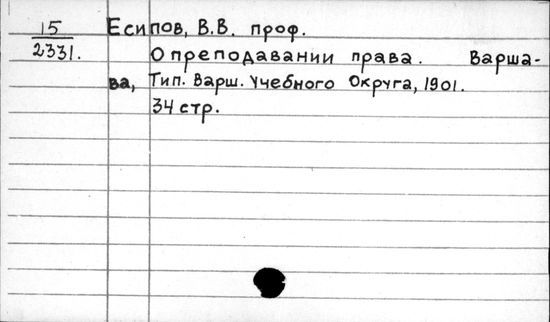 15 Есипов, В.В. проф.
2331. О преподавании права. Варша-
ва, Тип. Варш. Учебного Округа, 1901.
34 стр.